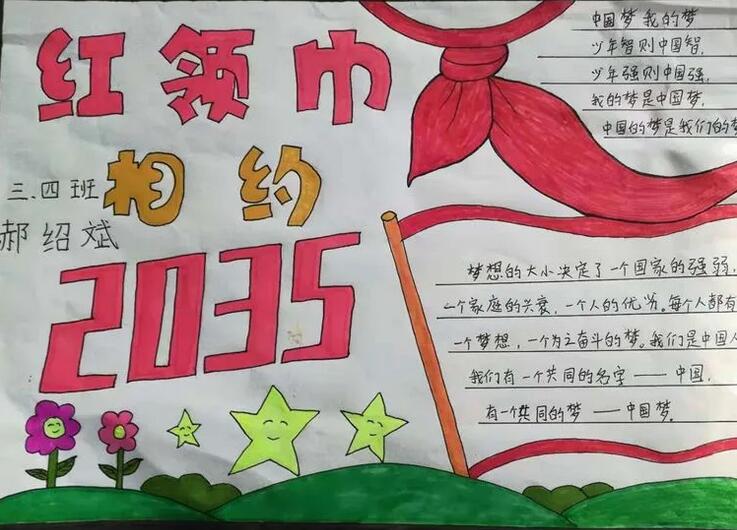 红领巾
相约
三.四班
郝绍斌
2035
中国梦 我的梦
少年智则中国智,
少年强则中国强,
我的梦是中国梦,
中国的梦是我们的梦
梦想的大小决定了一个国家的强弱,
一个家庭的兴衰,一个人的优劣。每个人都有
一个梦想,一个为之奋斗的梦。我们是中国人
我们有一个共同的名字——中国,
有一个共同的梦——中国梦。